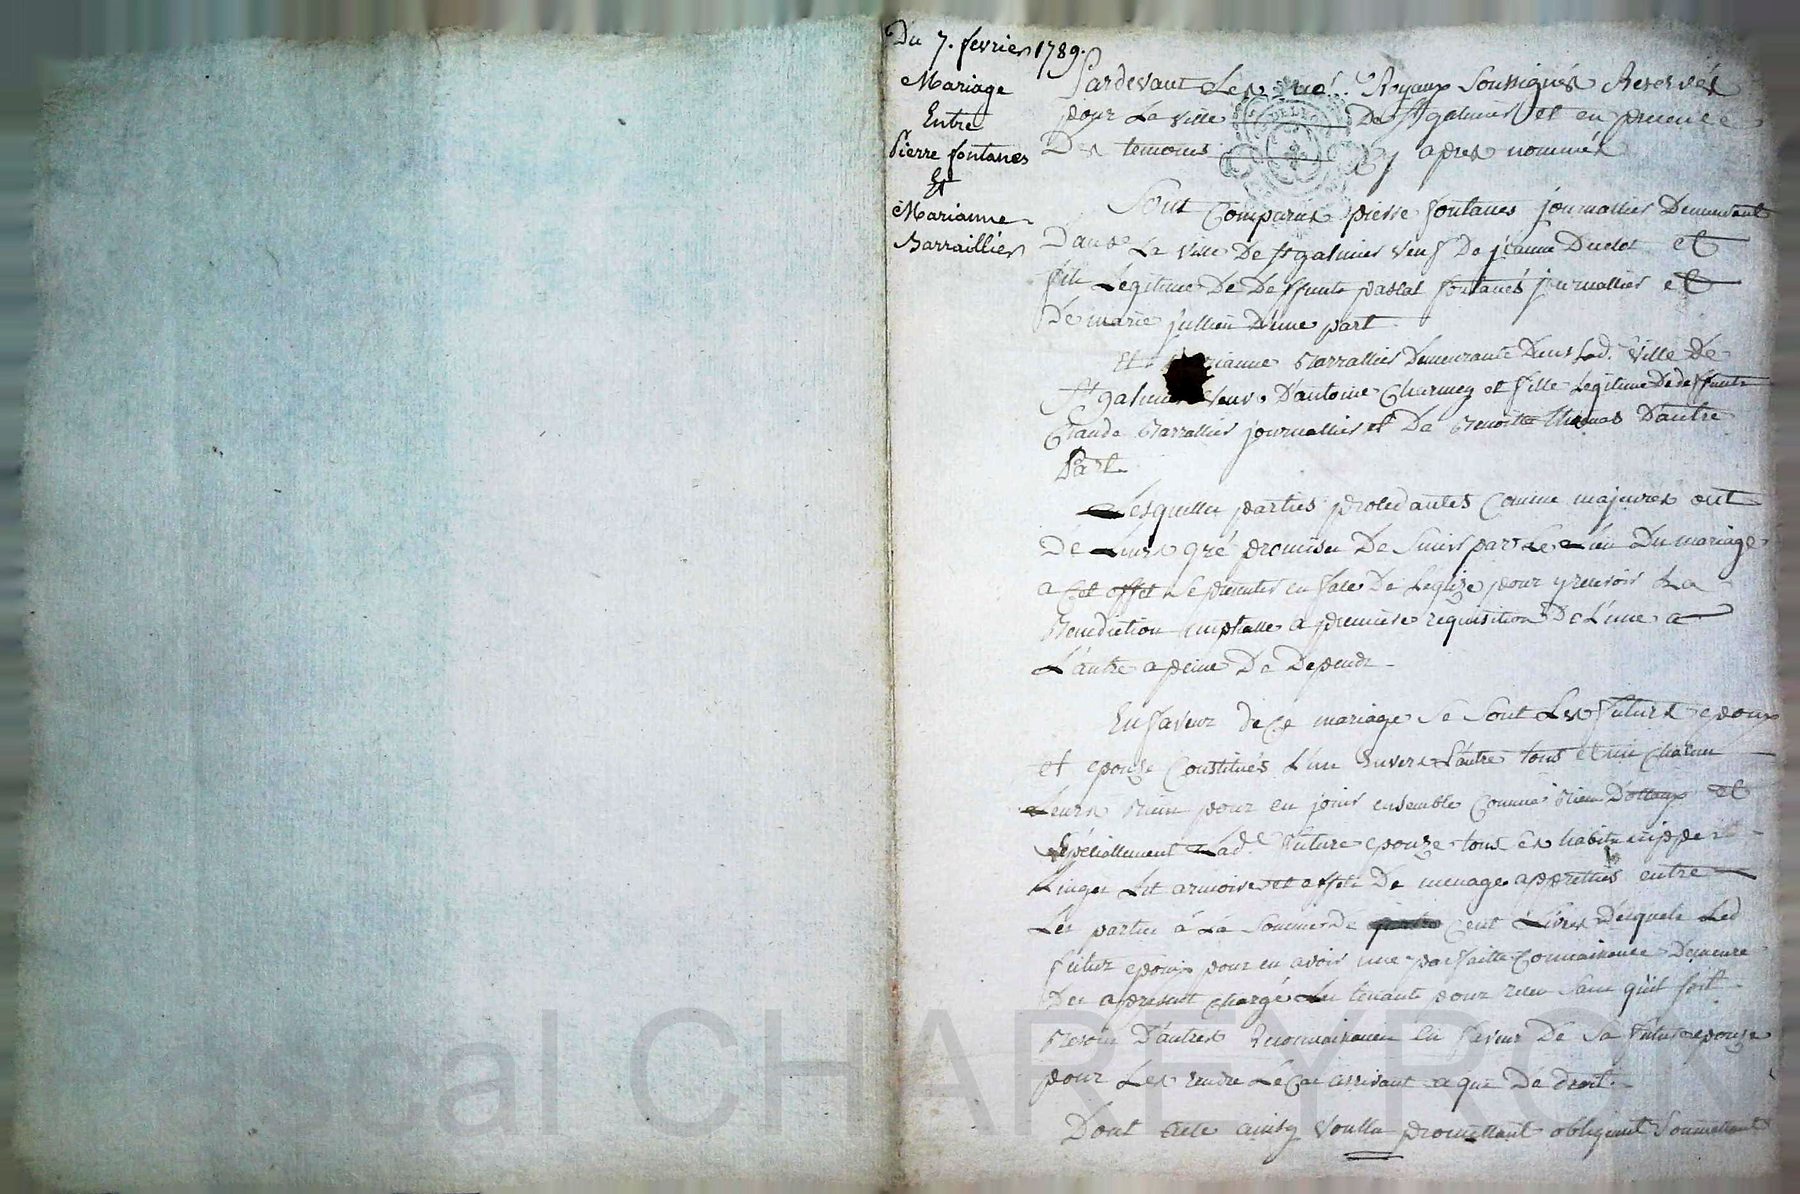 Du 7. fevrier 1789.
Mariage
Entre
Pierre fontanes
Et
Marianne
Barraillier
Pardevant Les Royaux Soussignés Reservés
pour La ville De St galmier et en presence
Des temoins Cy apres nommés
Sont Comparus pierre fontanes journallier Demeurant
Dans La ville De St galmier veuf De jeanne Duclot et
fils Legitime De Deffunts pascal fontanés journallier et
De marie jullien D'une part
Et rianne Barrallier Demeurante Dans Lad. ville De
St galmier veuve D'antoine Charmey et fille Legitime De deffunts
Claude Barrallier journallier et De Benoitte thomas D'autre
Part
Lesquelles parties procedantes Comme majeures ont
De Leurs gré promises De S'unir par Le Lien Du mariage
a cet effet Se presenter en face De Leglize pour y recevoir La
Benediction nuptialle a premiere requisition De L'une a
L'autre a peine De Depends
En faveur de Ce mariage Se Sont Les futurs epoux
et epouze Constitués L'un Envers L'autre tous et un Chacun
Leurs Biens pour en jouir ensemble Comme Biens Dottaux et
Spéciallement Lad. future epouze tous Ses habits nippes
Linges Lit armoire et effets De menage apprettiés entre
Les parties á La Somme De cent Livres Desquels Led
futur epoux pour en avoir une parfaitte Connaissance Demeure
Des apresent Chargé Les tenant pour reçu Sans qu'il Soit
Besoin D'autres reconnaissances En faveur De Sa future epouze
pour Les rendre Le Cas arrivant a qui De droit.
Dont Acte ainsy Voullu promettant obligeant Soumettant
Pascal CHAREYRON